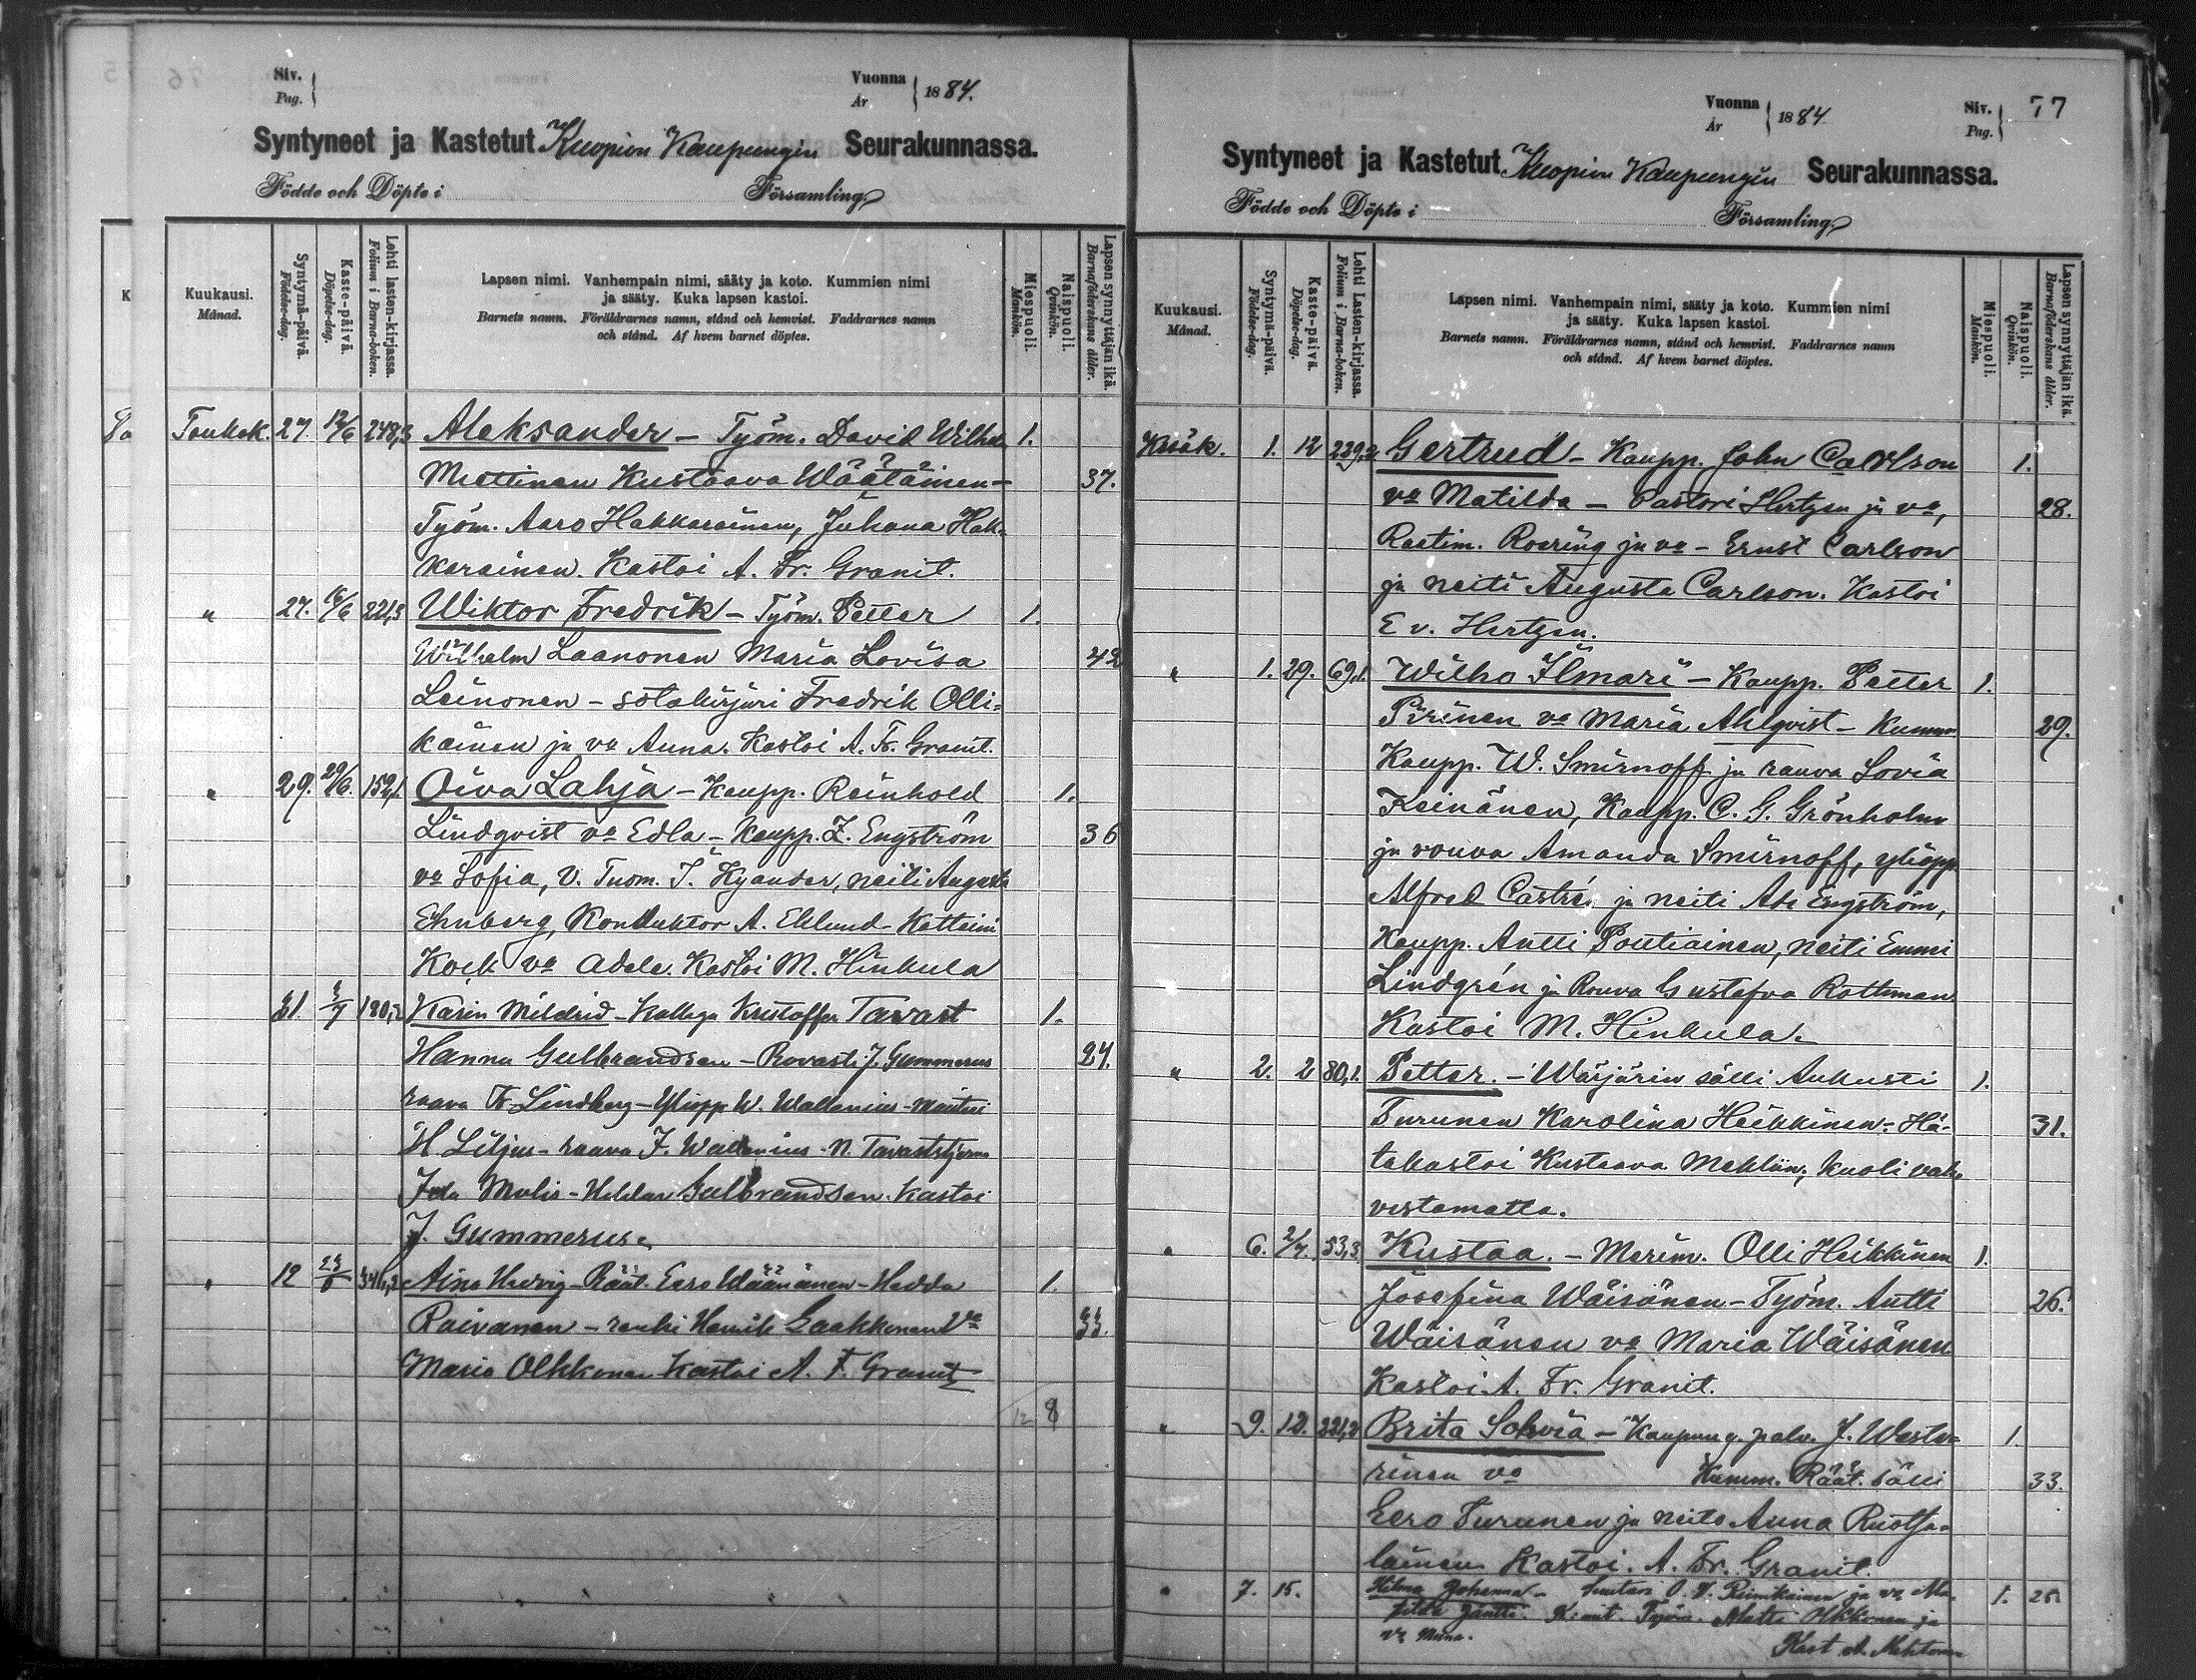 Siv.
Pag.
Vuonna
År
1884.
Syntyneet ja Kastetut Kuopion Kaupungin Seurakunnassa.
Födde och Döpte i Församling.
Kuukausi.
Månad.
Syntymä-päivä.
Födelse-dag.
Kaste-päivä.
Döpelse-dag.
Lehti lasten-kirjassa.
Folium i Barna-boken.
Lapsen nimi. Vanhempain nimi, sääty ja koto. Kummien nimi
ja sääty. Kuka lapsen kastoi.
Barnets namn. Föräldrarnes namn, stånd och hemvist. Faddrarnes namn
och stånd. Af hvem barnet döptes.
Miespuoli.
Mankön.
Naispuoli.
Qvinkön.
Lapsen synnyttäjän ikä.
Barnaföderskans ålder.
Toukok. 27. 12/6 248,3 Aleksander – Työm. David Wilhelm 1.
Miettinen Kustaava Wäätäinen – 37.
Työm. Aaro Hakkarainen, Juhana Hak-
karainen. Kastoi A. Fr. Granit.
" 27. 16/6 221,3 Wiktor Fredrik – Työm. Petter 1.
Wilhelm Laanonen Maria Lovisa 42
Leinonen – sotakirjuri Fredrik Olli-
kainen ja va Anna. Kastoi A. Fr. Granit.
" 29. 29/6. 152,1 Oiva Lahja – Kaupp. Reinhold 1.
Lindqvist va Edla – Kaupp. Z. Engström 36
va Sofia, V. Tuom. J. Kyander, neiti Augusta
Ehnberg, Konduktor A. Eklund – Katteini
Kock va Adele. Kastoi M. Hinkula
31. 3/7 180,2 Karin Mildrid – Kollega Kristoffer Tavast 1.
Hanna Gulbrandsen – Rovasti J. Gummerus 27.
rouva Fr Lindberg – Yliopp W. Wallenius –
H Liljus – rouva F. Wallenius – N. Tavaststjerna
Gulbrandsen. Kastoi
J. Gummerus.
" 12 23/6 346,2 Aina Hedvig – Räät. Eero Väänänen – Hedda 1.
Roivanen – renki Henrik Laakkonen va 33.
Maria Olkkonen Kastoi A. F. Granit
12 8
Vuonna
År
1884
Siv.
Pag.
77
Syntyneet ja Kastetut Kuopion Kaupungin Seurakunnassa.
Födde och Döpte i Församling.
Kuukausi.
Månad.
Syntymä-päivä.
Födelse-dag.
Kaste-päivä.
Döpelse-dag.
Lehti Lasten-kirjassa.
Folium i Barna-boken.
Lapsen nimi. Vanhempain nimi, sääty ja koto. Kummien nimi
ja sääty. Kuka lapsen kastoi.
Barnets namn. Föräldrarnes namn, stånd och hemvist. Faddrarnes namn
och stånd. Af hvem barnet döptes.
Miespuoli.
Mankön.
Naispuoli.
Qvinkön.
Lapsen synnyttäjän ikä.
Barnaföderskans ålder.
Kesäk. 1. 12 239,2 Gertrud – Kaupp. John Carlson 1.
va Matilda – Pastori Hertzen ja va, 28.
Raatim. Roering ja va – Ernst Carlson
ja neiti Augusta Carlson. Kastoi
E v. Hertzen.
" 1. 29. 69,1. Wilho Ilmari – Kaupp. Petter 1.
Pirinen va Maria Ahlqvist – Kumm 29.
Kaupp. W. Smirnoff ja rouva Lovia
Keinänen, Kaupp. C. G. Grönholm
ja rouva Amanda Smirnoff, yliopp.
Alfred Castrén ja neiti Ada Engström,
Kaupp. Antti Poutiainen, neiti Emmi
Lindgrén ja Rouva Gustafva Rottman
Kastoi M. Hinkula.
" 2. 2 80,1. Petter. – Wärjärin sälli Aukusti 1.
Turunen Karolina Heikkinen – Hä- 31.
täkastoi Kustaava Mehlin, kuoli vah-
vistamatta.
" 6. 2/7. 53,3 Kustaa. – Merim. Olli Heikkinen 1.
Josefina Wäisänen – Työm. Antti 26.
Wäisänen va Maria Wäisänen
Kastoi A. Fr. Granit.
" 9. 12. 221,2 Brita Sohvia – Kaupung. palv. J. Weste- 1.
rinen va Kumm. Räät. sälli 33.
Eero Turunen ja neito Anna Ruotsa-
lainen Kastoi. A. Fr. Granit.
" 7. 15. Hilma Johanna – Suutari O. V. Reinikainen ja va Ma- 1. 25
tilda Jäntti. Työm. Matti Olkkonen ja
va Miina.
Kast A.